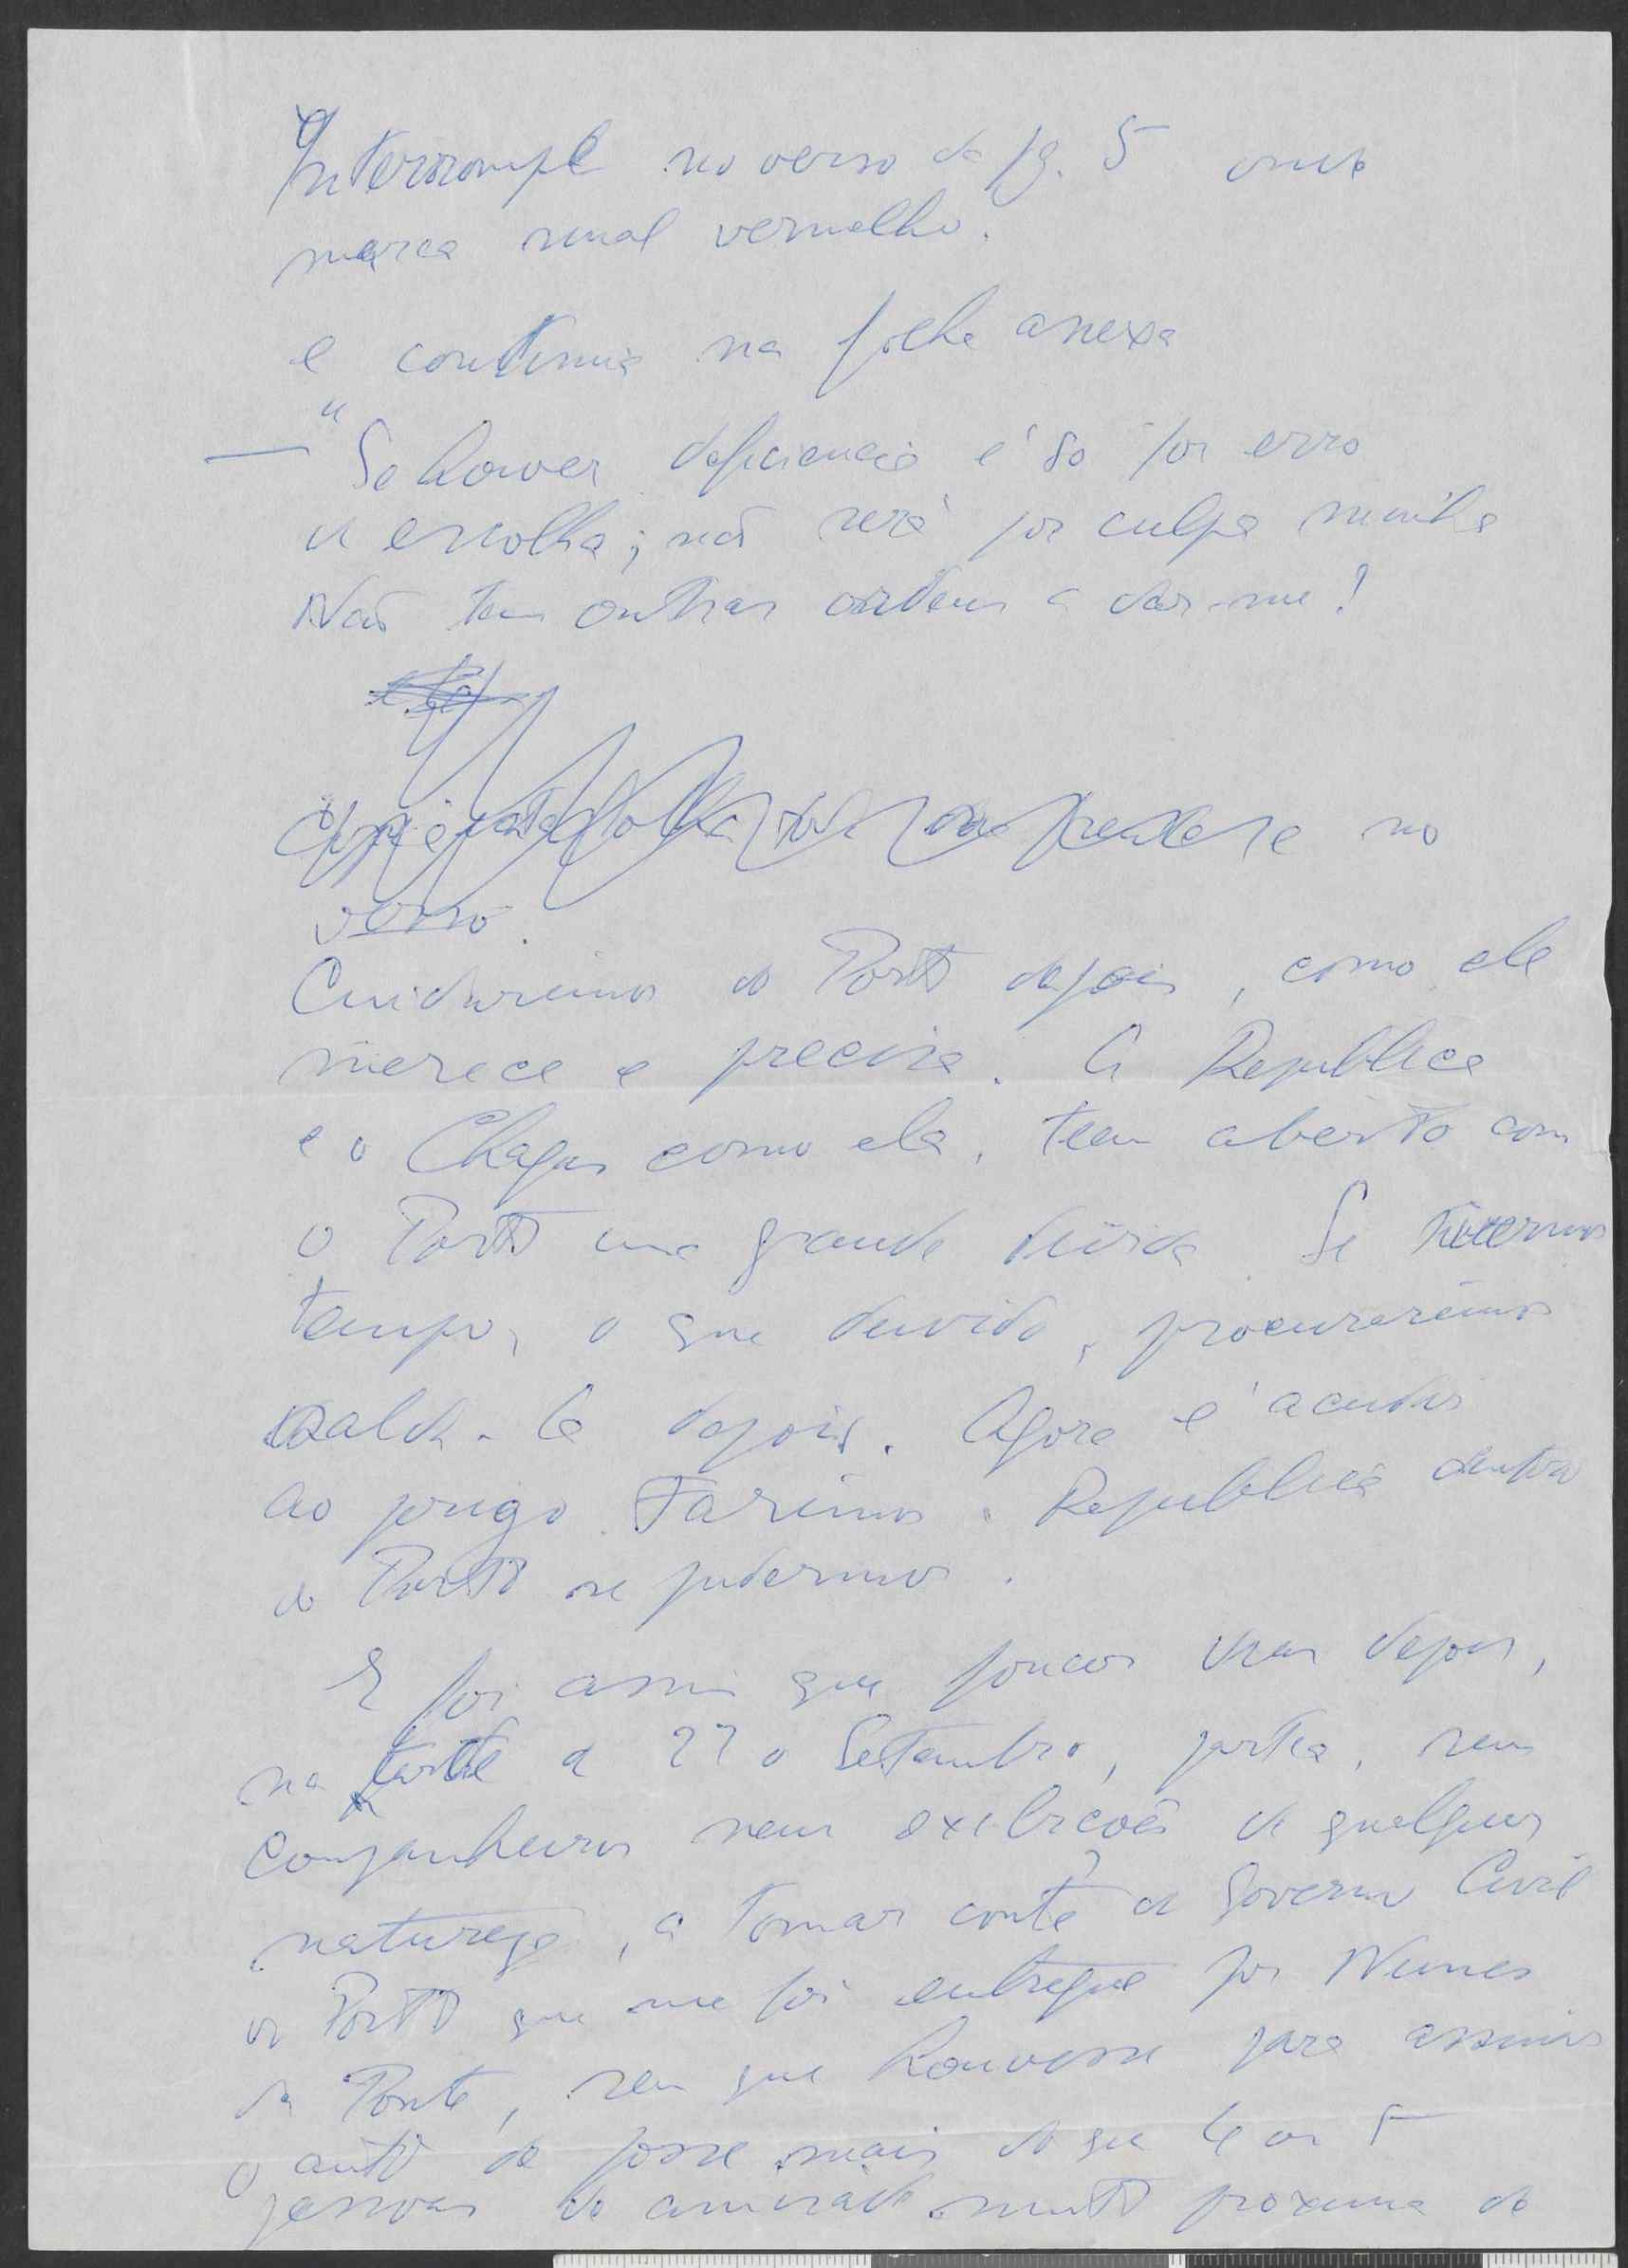 Interrompe no verso da pg. 5 onde
marca sinal vermelho.
e continua na folha anexa
— "Se houver deficiencia é só por erro
de escolha; não será por culpa minha
Não tem outras ordens a dar-me?
no
verso.
Cuidaremos do Porto depois, como ele
merece e precisa. A Republica
e o Chagas como ela, teem aberto com
o Porto uma grande divida. Se tivermos
tempo, o que duvido, procuraremos
saldá-la depois. Agora é acudir
ao perigo. Faremos a Republica dentro
do Porto se pudermos.
E foi assim que poucos dias depois,
na tarde de 27 de Setembro, partia, sem
companheiros nem exibicões de qualquer
natureza, a tomar conta do Governo Civil
do Porto que me foi entregue por Nunes
da Ponte, sem que houvesse para assinar
o auto de posse mais do que 4 ou 5
pessoas de amisade muito proxima do